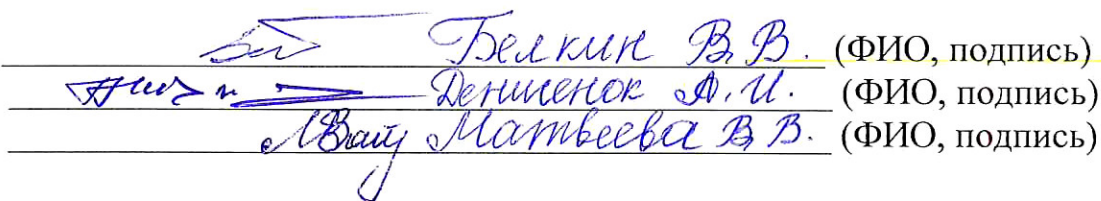 Белкин В.В. (ФИО, подпись)
Денисенок А.И. (ФИО, подпись)
Матвеева В.В. (ФИО, подпись)